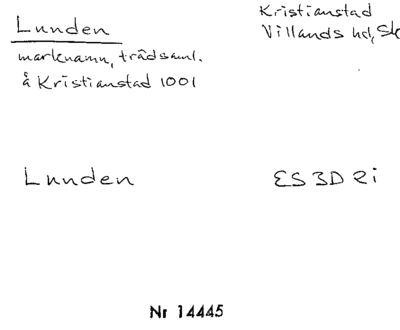 Lunden
Kristianstad
Villands hd, Sk
marknamn, trädsaml.
å Kristianstad 1001
Lunden
ES 3D 2i
Nr 14445